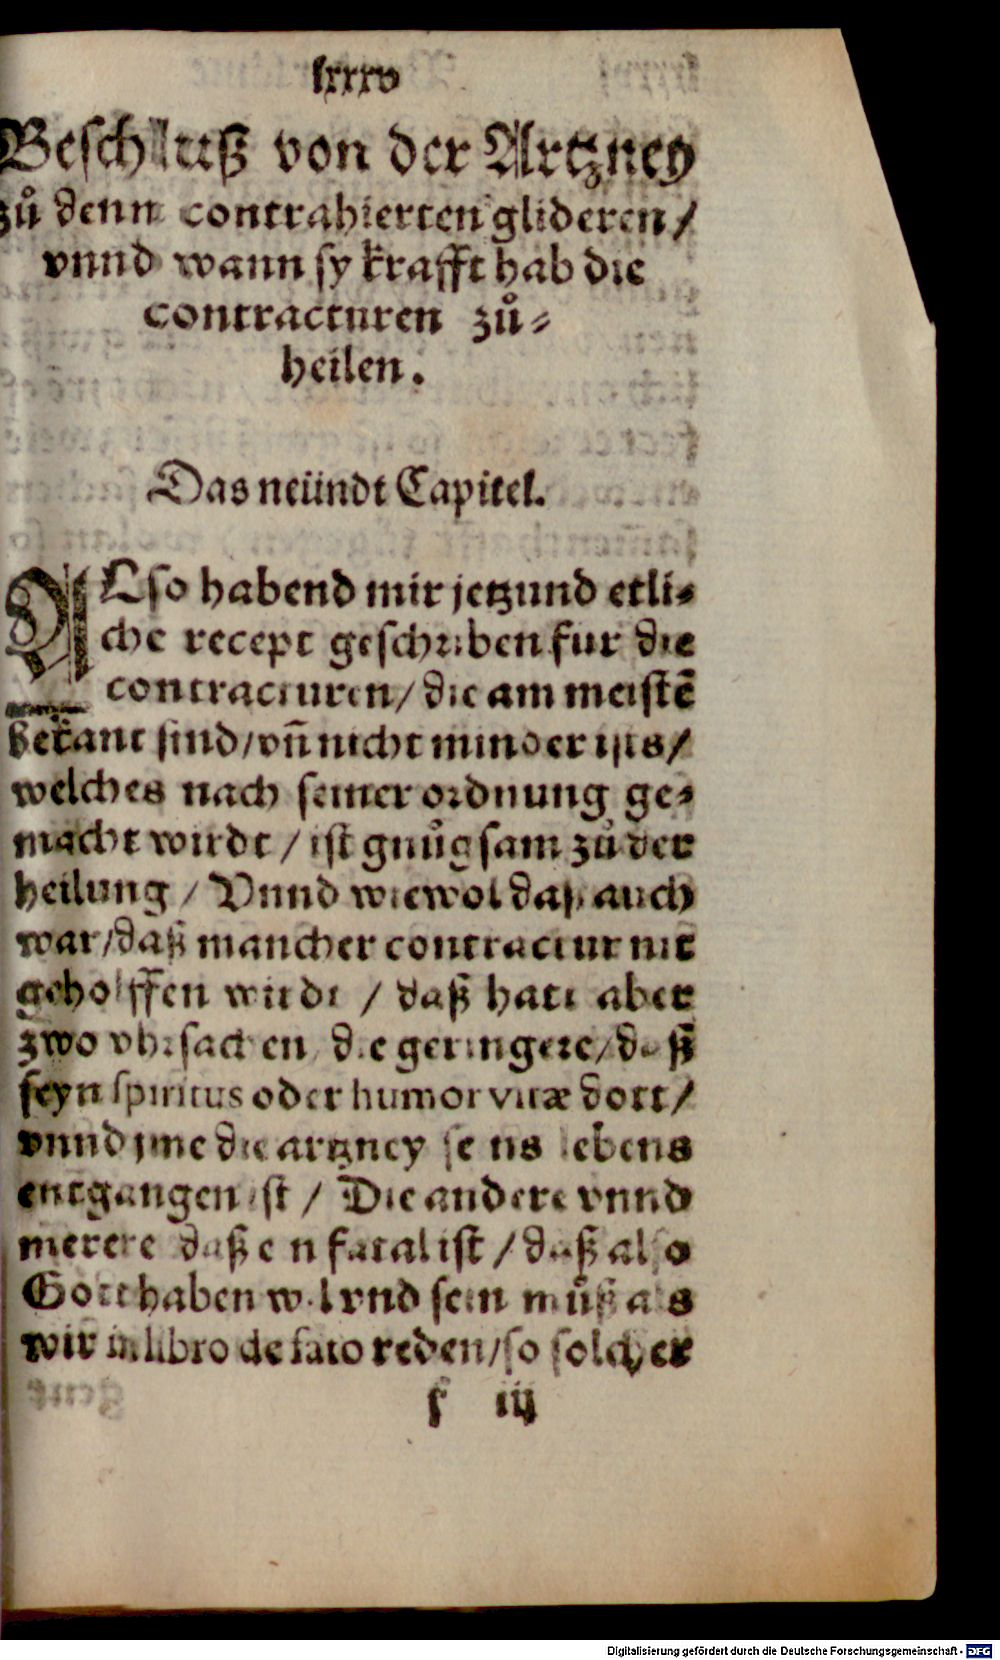 lxxxv
Beschluß von der Artzney
zů denn contrahierten glideren /
vnnd wann sy krafft hab die
contracturen zů⸗
heilen.
Das neündt Capitel.
ALso habend mir jetzund etli⸗
che recept geschriben fur die
contracturen / die am meistē
bekant sind / vñ nicht minder ists /
welches nach seiner ordnung ge⸗
macht wirdt / ist gnůgsam zů der
heilung / Vnnd wiewol daß auch
war / daß mancher contractur nit
geholffen wirdt / daß hatt aber
zwo vhrsachen die geringere / daß
seyn spiritus oder humor vitæ dott /
vnnd jme die artzney seins lebens
entgangen ist / Die andere vnnd
merere daß ein fatal ist / daß also
Gott haben wil vnd sein můß als
wir in libro de fato reden / so solcher
f iij
Digitalisierung gefördert durch die Deutsche Forschungsgemeinschaft - DFG